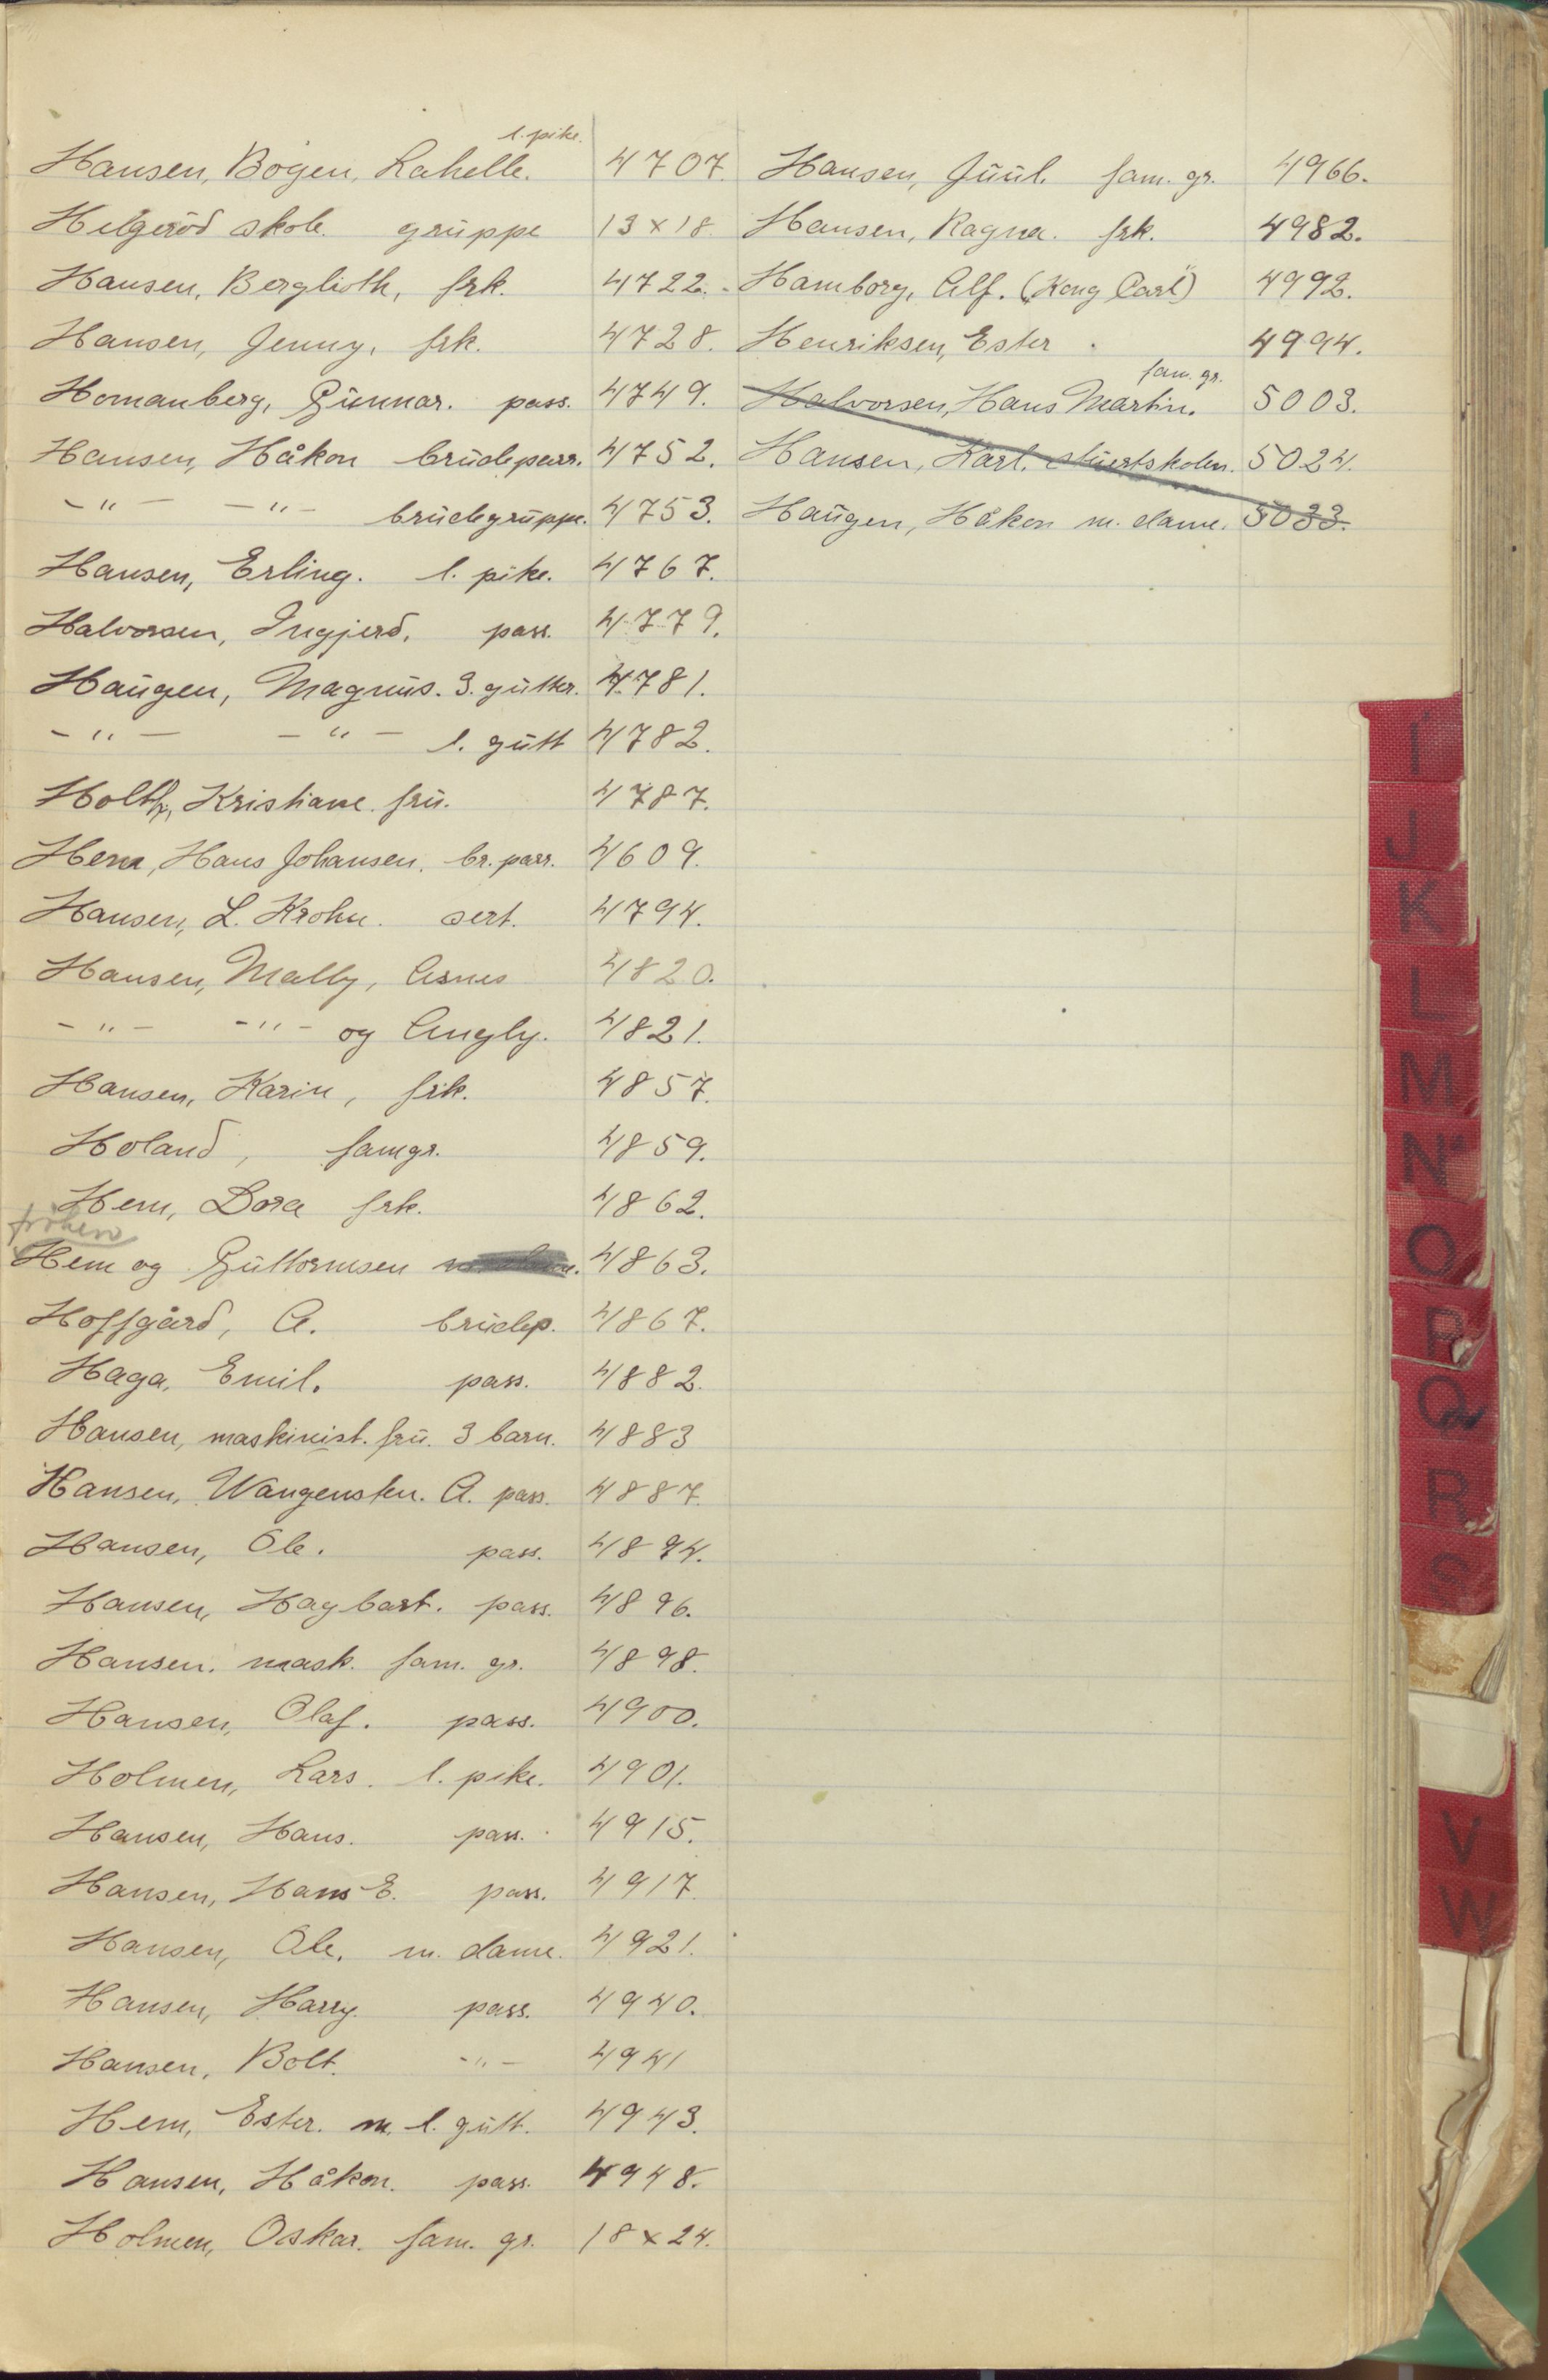 Hansen, Bogen, Rahelle. l. pike. 4707.
Helgeröd skole. gruppe 13 x 18.
Hansen, Berglioth, frk. 4722.
Hansen, Jenny, frk. 4728.
Homanberg, Gunnar. pass. 4749.
Hansen, Håkon brudeparr. 4752.
-"- -"- brudegruppe. 4753.
Hansen, Erling. l. pike. 4767.
Halvorsen, Ingjerd. pass. 4779.
Haugen, Magnus. 3. gutter. 4781.
-"- -"- l. gutt 4782.
Holth, Kristiane. fru. 4787.
Hem, Hans Johansen. br. parr. 4609.
Hansen, L. Krohn. sert. 4794.
Hansen, Mally, Asnes 4820.
-"- -"- og Angly. 4821.
Hansen, Karin, frk. 4857.
Holand, famgr. 4859.
Hem, Dora frk. 4862.
frøken
Hem og Guttormsen 4863.
Hoffgård, A. brudep. 4867.
Haga, Emil. pass. 4882.
Hansen, maskinist. fru. 3 barn. 4883
Hansen, Wangensten. A. pass. 4887.
Hansen, Ole. pass. 4894.
Hansen, Hagbart. pass. 4896.
Hansen. mask. fam. gr. 4898.
Hansen, Olaf. pass. 4900.
Holmen, Lars. l. pike. 4901.
Hansen, Hans. pass. 4915.
Hansen, Hans E. pass. 4917.
Hansen, Ole. m. dame. 4921.
Hansen, Harry. pass. 4940.
Hansen, Bolt. -"- 4941
Hem, Ester. m. l. gutt. 4943.
Hansen, Håkon. pass. 4948.
Holmen, Oskar. fam. gr. 18 x 24.
Hansen, Juul. fam. gr. 4966.
Hansen, Ragna. frk. 4982.
Hamborg, Alf. („Kong Carl") 4992.
Henriksen, Ester. 4994.
Halvorsen, Hans Martin. fam. gr. 5003.
Hansen, Karl. stuertskolen. 5024.
Haugen, Håkon m. dame. 5033.
I
J
K
L
M
N
O
P
Q
R
S
V
W